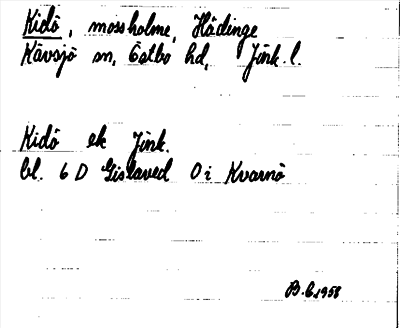 Kidö, mossholme, Hädinge
Kävsjö sn, Östbo hd, Jönk. l.
Kidö ek Jönk.
bl. 6 D Gislaved O i Kvarnö
B.E. 1958